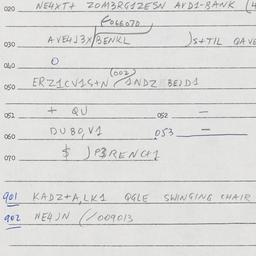 020 NE4XT+ ZOM3RG1ZESN AVD1-BANK (4
(066070
030 AVE4J3X/BENKL )S+TIL QAVE
040 O
(002)
050 ERZ1CV1S+N /1NDZ BEJD1
051 + QU 052 —
060 DUBO,V1 053 —
070 $ )P3RENCH1
901 KADZ+A,LK1 QGLE SWINGING CHAIR
902 NE4JN (/009013